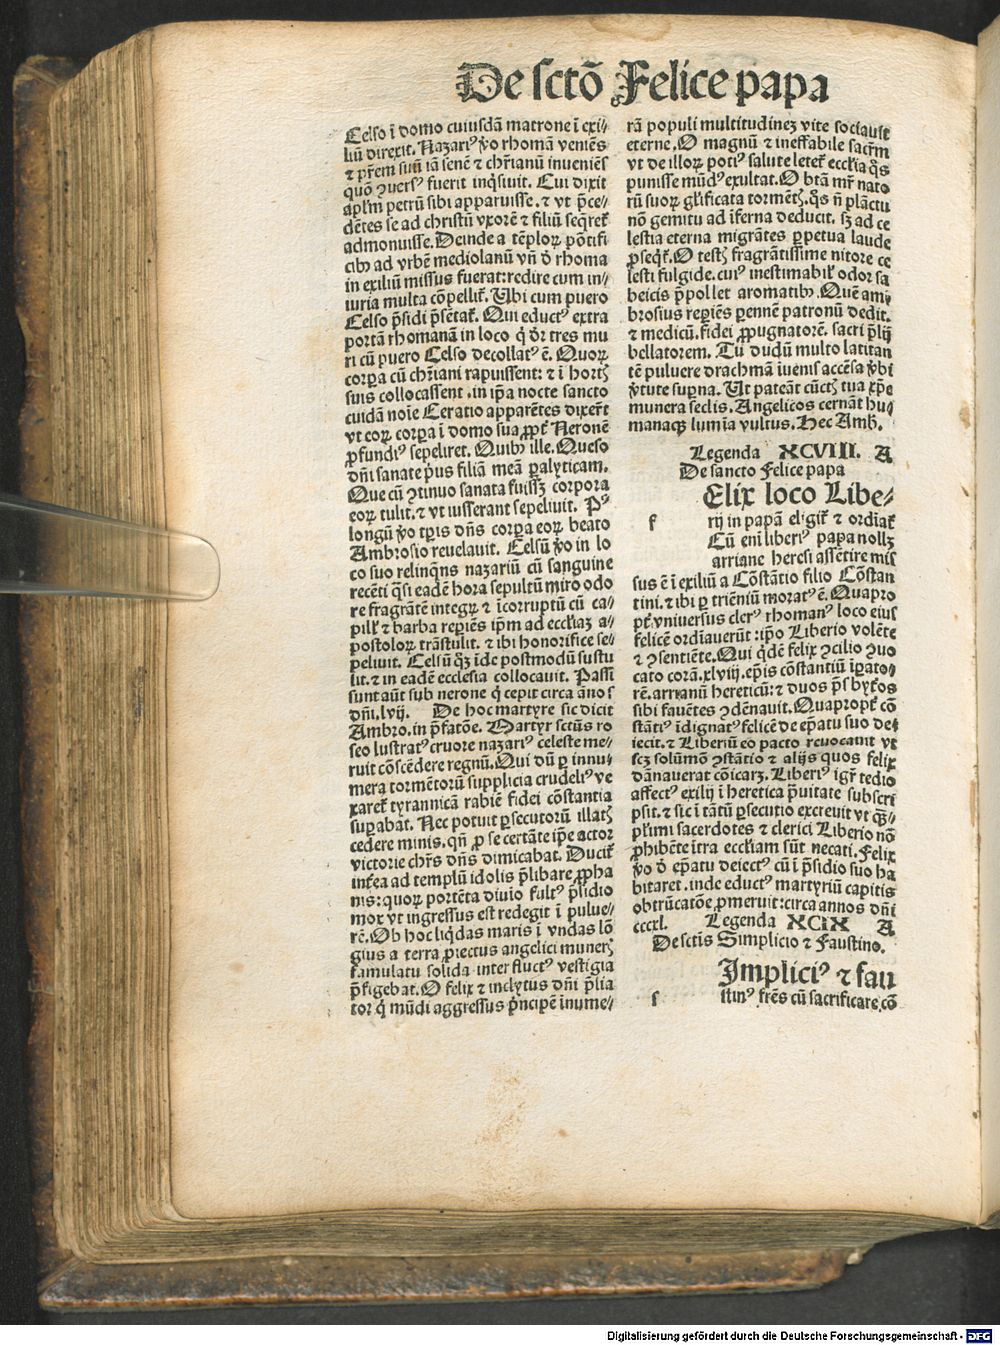 De sctō Felice papa
Celso ī domo cuiusdā matrone ī exi⸗
liū direxit. Nazariꝰ ṽo rhomā veniēs
⁊ pr̄em suū iā senē ⁊ chr̄ianū inueniēs
quō ꝯuersꝰ fuerit inq̄siuit. Cui dixit
apl̄m petrū sibi apparuisse. ⁊ vt p̄ce⸗
dētes se ad christū vxorē ⁊ filiū seq̄ret̃
admonuisse. Deinde a tēploꝝ pōtifi
cibꝫ ad vrbē mediolanū vn̄ ď rhoma
in exiliū missus fuerat: redire cum in⸗
iuria multa cōpellit̃. Ubi cum puero
Celso p̄sidi p̄sētat̃. Qui eductꝰ extra
portā rhomanā in loco q̇ dr̄ tres mu
ri cū puero Celso decollatꝰ ē. Quoꝝ
corꝑa cū chr̄iani rapuissent: ⁊ ī hortꝭ
suis collocassent .in ip̄a nocte sancto
cuidā noīe Ceratio apparētes dixer̃t
vt eoꝝ corꝑa ī domo sua ꝓpt̃ Neronē
ꝓfundiꝰ sepeliret. Quibꝫ ille. Queso
dn̄i sanate pͥus filiā meā ꝑalyticam.
Que cū ꝯtinuo sanata fuissꝫ corpora
eoꝝ tulit. ⁊ vt iusserant sepeliuit. Pꝰ
longū ṽo tꝑis dn̄s corꝑa eoꝝ beato
Ambrosio reuelauit. Celsū ṽo in lo
co suo relinq̄ns nazariū cū sanguine
recēti q̄si eadē hora sepultū miro odo
re fragrātē integꝝ ⁊ īcorruptū cū ca⸗
pill̃ ⁊ barba reꝑiēs ip̄m ad eccl̄iaꝫ a⸗
postoloꝝ trāstulit. ⁊ ibi honorifice se⸗
peliuit. Celsū q̄ꝫ īde postmodū sustu
lit. ⁊ in eadē ecclesia collocauit. Passi
sunt aūt sub nerone q̇ cepit circa ān̄o s
dn̄i. lvij. De hoc martyre sic dicit
Ambro. in p̄fatōe. Martyr sctūs ro
seo lustratꝰ cruore nazariꝰ celeste me⸗
ruit cōscēdere regnū. Qui dū ꝑ innu⸗
mera tormētorū supplicia crudeliꝰ ve
xaret̃ tyrannicā rabiē fidei cōstantia
suꝑabat. Nec potuit ꝑsecutorū illatꝭ
cedere minis. qn̄ ꝓ se certāte ip̄e actor
victorie chr̄s dn̄s dimicabat. Ducit̃
int̃ea ad templū idolis p̄libare ꝓpha
nis: quoꝝ portēta diuio fultꝰ p̄sidio
mox vt ingressus est redegit ī pulue⸗
rē. Ob hoc liq̇das maris ī vndas lō
gius a terra ꝓiectus angelici munerꝭ
famulatu solida inter fluctꝰ vestigia
p̄figebat. O felix ⁊ inclytus dn̄i p̄lia
tor q̇ mūdi aggressus pͥncipē inume⸗
rā populi multitudineꝫ vite sociauit
eterne. O magnū ⁊ ineffabile sacr̄m
vt de illoꝝ potiꝰ salute letet̃ eccl̄ia q̇s
punisse mūdꝰ exultat. O btām mr̄ nato
rū suoꝝ gl̄ificata tormētꝭ. q̇s n̄ plāctu
nō gemitu ad īferna deducit. sꝫ ad ce
lestia eterna migrātes ꝑpetua laude
ꝓseq̇t̃. O testꝭ fragrātissime nitore ce
lesti fulgide. cuiꝰ inestimabil̃ odor sa
beicis p̄pollet aromatibꝫ. Quē am⸗
brosius reꝑiēs ꝑennē patronū dedit.
⁊ medicū. fidei ꝓpugnatorē. sacri p̄lij
bellatorem. Tu dudū multo latitan
tē puluere drachmā iuenis accēsa ṽbi
ṽtute suꝑna. Ut pateāt cūctꝭ tua xp̄e
munera seclis. Angelicos cernāt hu⸗
manaqꝫ lumīa vultus. Hec Amb̄.
Legenda XCVIII. A
De sancto Felice papa
Elix loco Libe⸗
f rij in papā eligit̃ ⁊ ordīat̃
Cū enī liberiꝰ papa nollꝫ
arriane heresi assētire mis
sus ē ī exiliū a Cōstātio filio Cōstan
tini. ⁊ ibi ꝑ triēniū moratꝰ ē. Quapro
pt̃. vniuersus clerꝰ rhomanꝰ loco eius
felicē ordīauerūt: ip̄o Liberio volēte
⁊ ꝯsentiēte. Qui q̇dē felix ꝯcilio ꝯuo
cato corā. xlviij. ep̄is cōstantiū īꝑato⸗
rē. arrianū hereticū: ⁊ duos p̄sbyt̃os
sibi fauētes ꝯdēnauit. Quapropt̃ cō
stātiꝰ īdignatꝰ felicē de ep̄atu suo de⸗
iecit. ⁊ Liberiū eo pacto reuocauit vt
scꝫ solūmō ꝯstātio ⁊ alijs quos felix
dānauerat cōicarꝫ. Liberiꝰ igr̃ tedio
affectꝰ exilij ī heretica p̄uitate subscri
psit. ⁊ sic ī tātū ꝑsecutio excreuit vt q̄ꝫ⸗
pl̃imi sacerdotes ⁊ clerici Liberio nō
ꝓhibēte ītra eccl̄iam sūt necati. Felix
ṽo ď ep̄atu deiectꝰ cū ī p̄sidio suo ha
bitaret. inde eductꝰ martyriū capitis
obtrūcatōe ꝓmeruit: circa annos dn̄i
cccxl. Legenda XCIX A
De sctīs Simplicio ⁊ Faustino.
Impliciꝰ ⁊ fau
s stinꝰ fr̄es cū sacrificare. cō
Digitalisierung gefördert durch die Deutsche Forschungsgemeinschaft - DFG